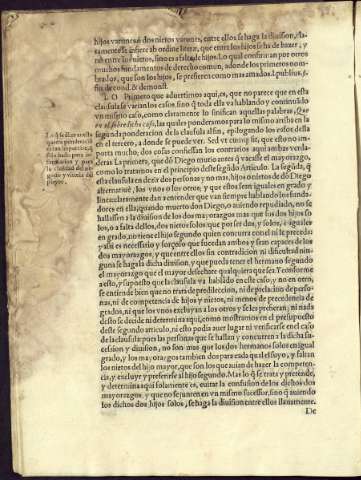 hijos varones, ò dos nietos varones, entre ellos se haga la diuision, cla-
ramente se infiere ab ordine literæ, que entre los hijos se ha de hazer, y
entre los nietos, sino es a falta de hijos. Lo qual confirman por otros
muchos fundamentos de derecho comun, adonde los primeros no-
brados, que son los hijos, se prefieren como mas amados. l. publius. §.
fin. de cond. & demonst.
I. O Primero que aduertimos aqui, es, que no parece que en esta
clausula se varian los casos, sino q̃ toda ella va hablando y continuãdo
vn mismo caso, como claramente lo sinifican aquellas palabras, Que
en el sobredicho caso, las quales ponderamos para lo mismo arriba en la
segunda ponderacion de la clausula al fin, epilogando los casos della
en el tercero, a donde se puede ver. Sed vt cumq; sit, que esto no im-
porta mucho, dos cosas confiessan los contrarios aqui ambas verda-
deras. La primera, que dõ Diego murio antes q̃ vacasse el mayorazgo,
como lo tratamos en el principio deste segũdo Articulo. La segũda, q̃
esta clausula trata de dos personas y no mas, hijos o nietos de dõ Diego
alternatiuè, los vnos o los otros, y que estos sean iguales en grado y
linea, claramente dan a entender que van siempre hablando los funda-
dores en ella, quando muerto don Diego, o siendo repudiado, no se
hallassen a la diuision de los dos mayorazgos mas que sus dos hijos so-
los, o a falta dellos, dos nietos solos, que por ser dos, y solos, e iguales
en grado, no tiene el hijo segundo quien concurra con el ni le preceda:
y assi es necessario y forçoso que sucedan ambos y sean capaces de los
dos mayorazgos, y que entre ellos sin contradicion ni dificultad nin-
guna se haga la dicha diuision, y que pueda tener el hermano segundo
el mayorazgo que el mayor desechare qualquiera que sea. Y conforme
a esto, y supuesto que la clausula va hablando en este caso, y no en otro,
se entiende bien que no tratan de predileccion, ni de prelacion de perso-
nas, ni de competencia de hijos y nietos, ni menos de precedencia de
grados, ni que los vnos excluyan a los otros y se les prefieran, ni nada
desto se decide ni determina aqui, como mostramos en el presupuesto
deste segundo articulo, ni esto podia auer lugar ni verificarse en el caso
de la clausula, pues las personas que se hallan y concurren a la dicha su-
cession y diuision, no son mas que los dos hermanos solos en igual
grado, y los mayorazgos tambien dos para cada qual el suyo, y faltan
los nietos del hijo mayor, que son los que auian de hazer la competen-
cia, y excluyr y preferirse al hijo segundo. Mas lo q̃ se trata y pretende,
y determina aqui solamente es, euitar la confusion de los dichos dos
mayorazgos, y que no se junten en vn mismo sucessor, sino q̃ auiendo
los dichos dos hijos solos, se haga la diuision entre ellos llanamente.
De